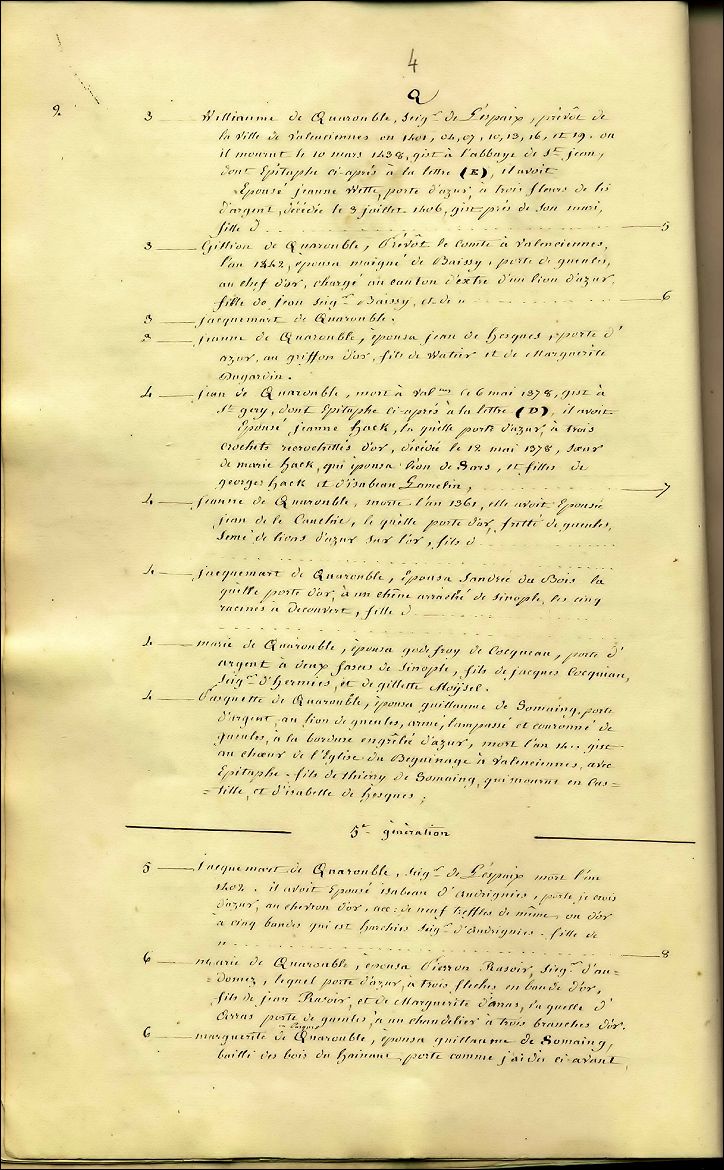 4
Q
2.
3 Williaume de Quarouble, seig.r de Lespaix, prévôt de
la ville de Valenciennes en 1401, 04, 07, 10, 13, 16, et 19. ou
il mourut le 10 mars 1438, gist à l'abbaye de St. jean,
dont Epitaphe ci-après à la lettre (E), il avoit
Epousé jeanne Wette, porte d'azur à trois fleurs de lis
d'argent, décédée le 3 juillet 1406, gist près de son mari,
fille d 5
3 Gillion de Quarouble, Prévôt le Comte à Valenciennes,
l'an 1342, épousa maigné de Baissy, porte de gueules,
au chef d'or, chargé au canton d'extre d'un lion d'azur,
fille de jean seig.r Baissy, et de n 6
3 jacquemart de Quarouble.
3 jeanne de Quarouble, épousa jean de hesques, porte d'
azur, au griffon d'or, fils de Watier et de Marguerite
Dugardin.
4 jean de Quarouble, mort à Val.nes le 6 mai 1378, gist à
St gery, dont Epitaphe ci-après à la lettre (D), il avoit
Epousé jeanne hack, la quelle porte d'azur, à trois
crochets d'or, décédée le 12 mai 1378, sœur
de marie hack, qui épousa lion de Sars, et filles de
georges hack et d'isabeau Gamelin, 7
4 jeanne de Quarouble, morte l'an 1361, elle avoit Epousé
jean de le Canchie, le quelle porte d'or, fretté de gueules,
semé de lions d'azur sur l'or, fils d
4 jacquemart de Quarouble, Epousa Sandrie du Bois la
quille porte d'or, à un chêne arraché de sinople, les cinq
racines a decouvert, fille d
4 marie de Quarouble, épousa godefroy de Cocqueau, porte d'
argent à deux fasces de sinople, fils de jacques Cocqueau,
seig.r d'hermies, et de gillette Moysel.
4 Pasquette de Quarouble, épousa guillaume de Somaing, porte
d'argent, au lion de gueules, armé, lampassé et couronné de
gueules, à la bordure engrêlée d'azur, mort l'an gist
au chœur de l'Eglise du Béguinage à Valenciennes, avec
Epitaphe - fils de thierry de Somaing, qui mourut en Cas=
=tille, et d'isabelle de hesques;
5e génération
5 Jacquemart de Quarouble, seig.r de Lespaix mort l'an
1402. il avoit Epousé isabeau d'Audrignies, porte je crois
d'azur, au chevron d'or, acc: de neuf treffles de même, ou d'or
à cinq bandes qui est harchies seig.r d'Audrignies - fille de
n 8
6 marie de Quarouble, épousa Pierron Rasoir, seig.r d'au=
=domez, lequel porte d'azur, à trois fleches en bande d'or,
fils de jean Rasoir, et de Marguerite d'arras, la quelle d'
Arras porte de gueules, à un chandelier à trois branches d'or.
6 marguerite de Quarouble, épousa guillaume de Somaing,
bailli des bois du hainaut, porte comme j'ai dit ci-avant,